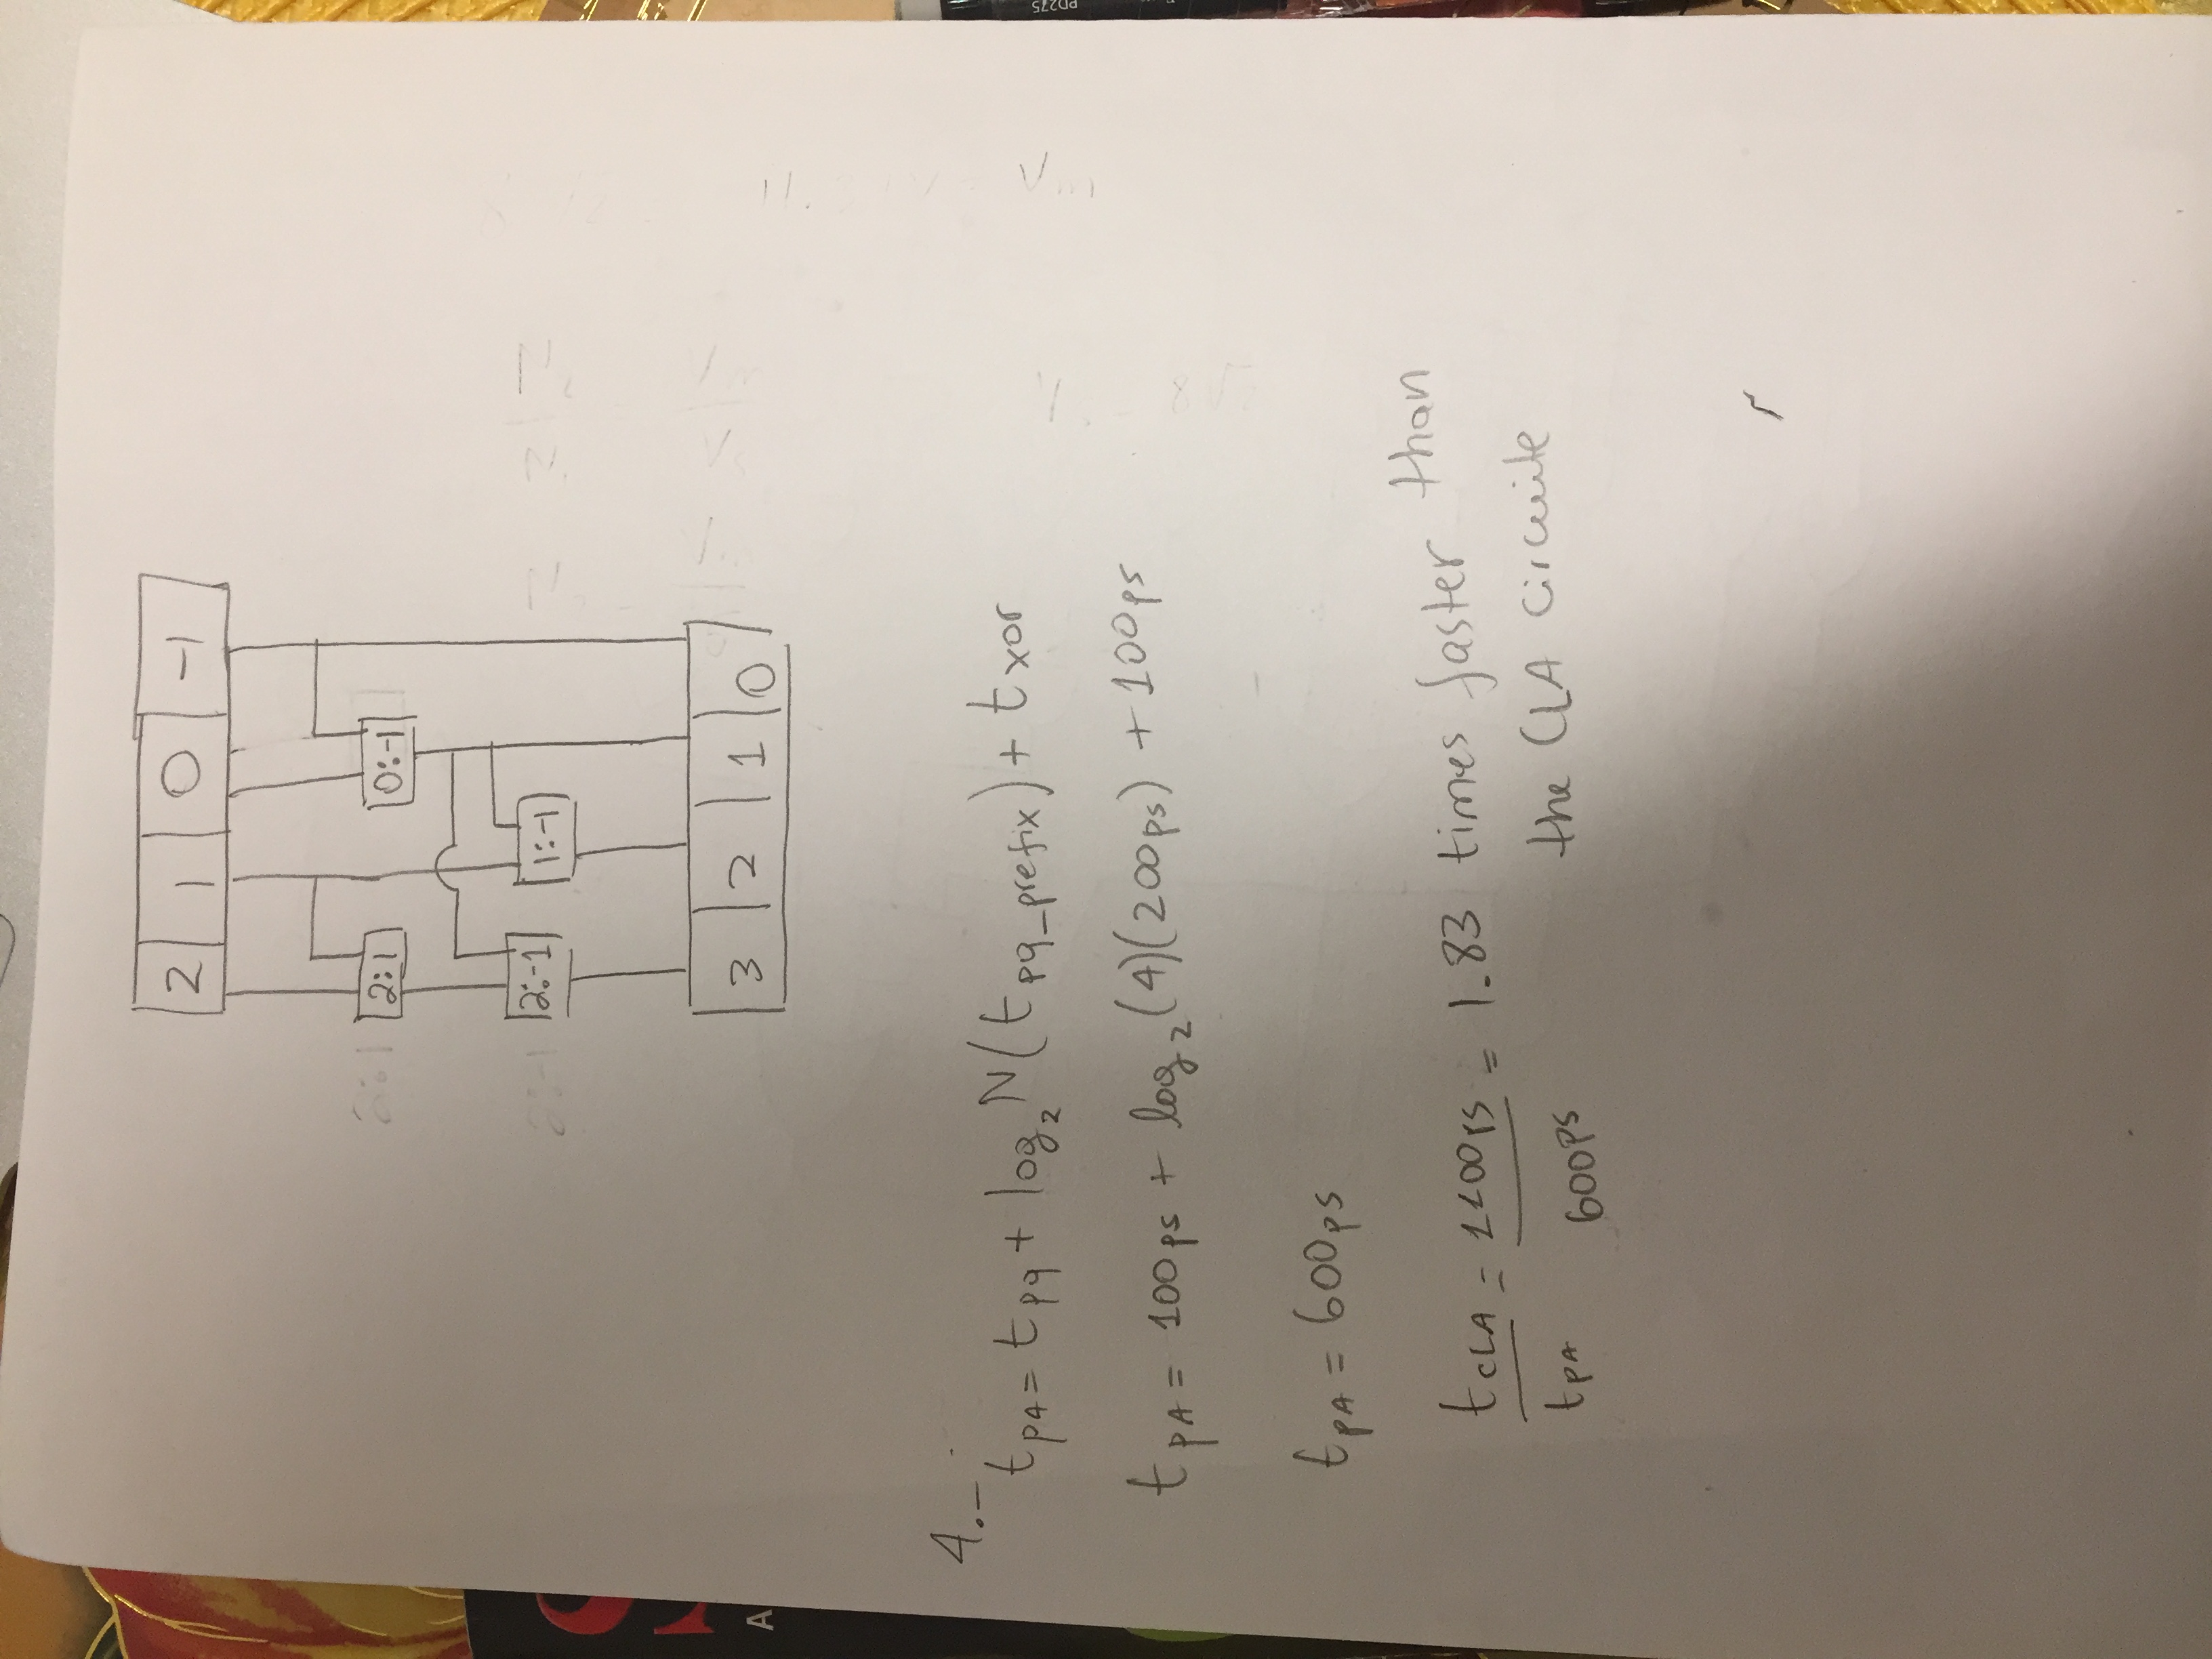 2 1 0 -1
2:1 0:-1
2:-1 1:-1
3 2 1 0
4.-
tpA = tpq + log₂N(tpq_prefix) + txor
tpA = 100ps + log₂(4)(200ps) + 100ps
tpA = 600ps
tCLA/tpA = 1100ps/600ps = 1.83 times faster than
the CLA circuite
S
A
PD275